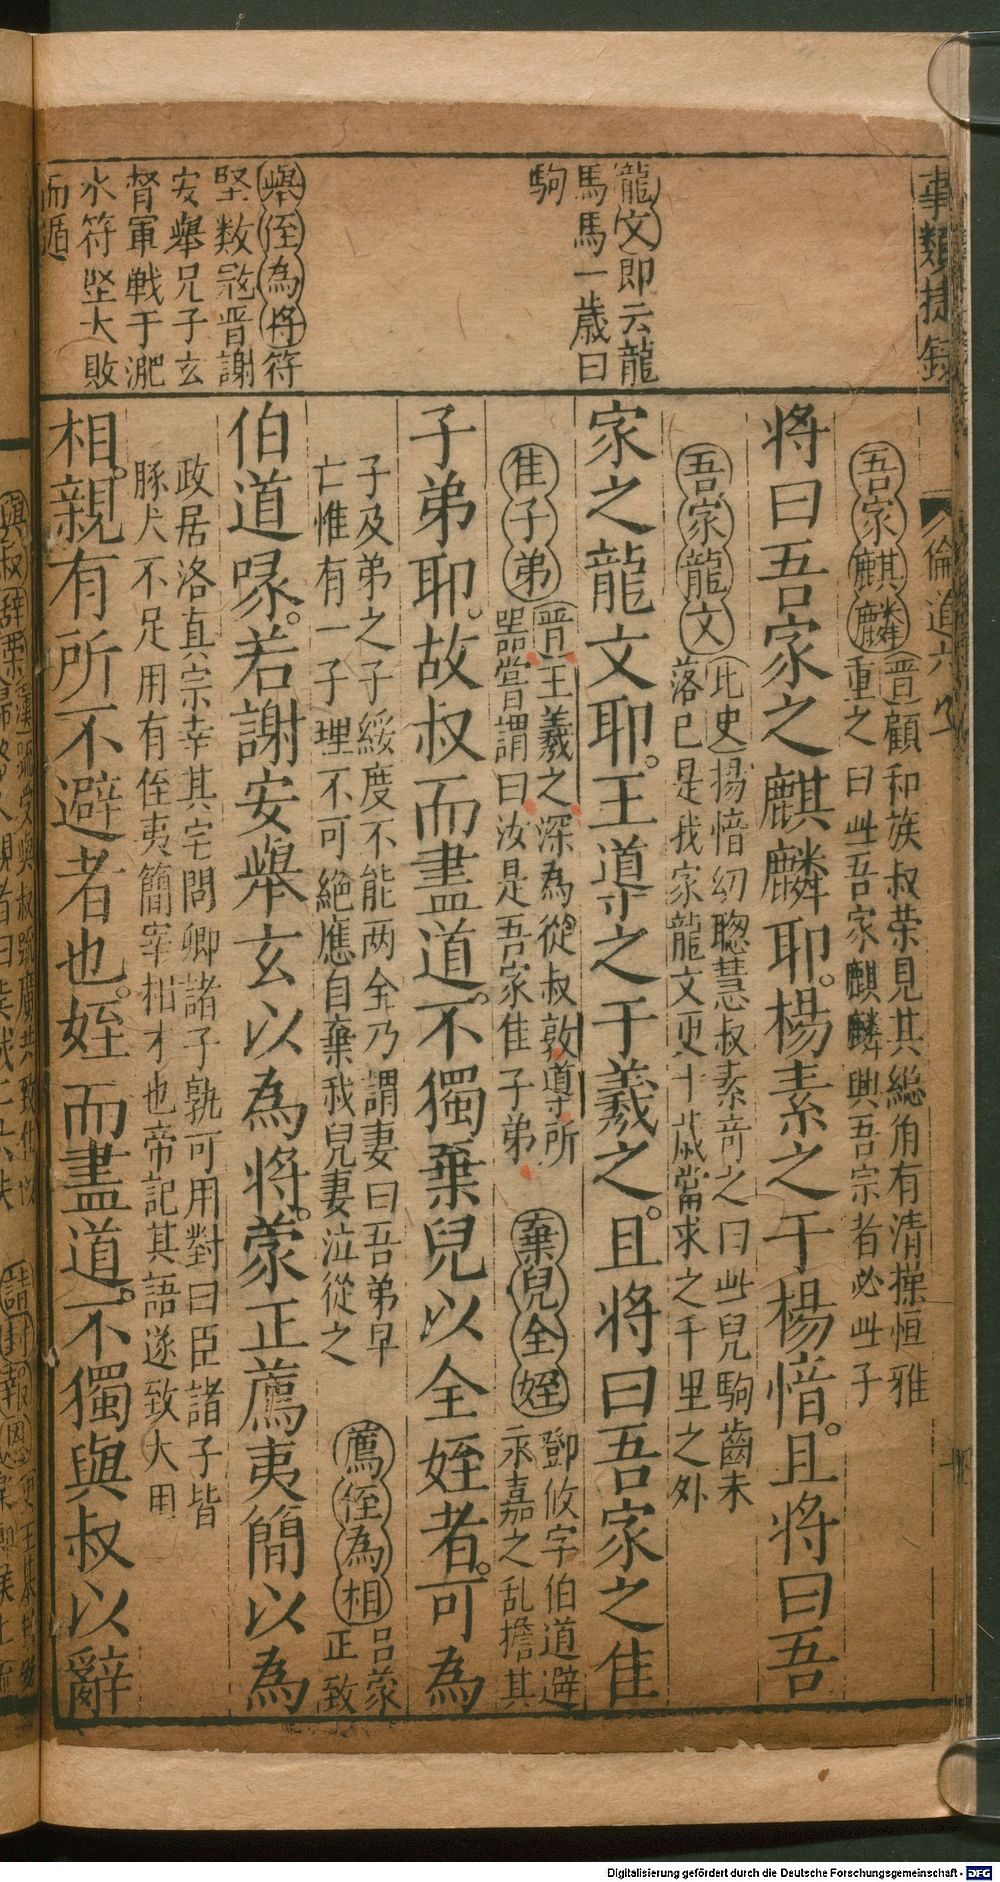 事類捷錄
倫道六
龍文即云龍
馬馬一歲曰
駒
舉侄為將符
堅数冦晋謝
安舉兄子玄
督軍戦于淝
水符堅大敗
而遁
吾家麒麟(晋)顧和族叔荣見其総角有清操恒雅
重之曰此吾家麒麟興吾宗者必此子
将曰吾家之麒麟耶。楊素之于楊愔。且将曰吾
吾家龍文(北史)揚愔幼聰慧叔素竒之曰此兒駒齒未
落已是我家龍文更十歲當求之千里之外
家之龍文耶。王導之于羲之。且将曰吾家之隹
隹子弟(晋)王羲之深為從叔敦導所
器嘗謂曰汝是吾家隹子弟
棄兒全姪鄧攸字伯道避
永嘉之乱擔其
子弟耶。故叔而盡道。不獨棄兒以全姪者。可為
子及弟之子綏度不能两全乃謂妻曰吾弟早
亡惟有一子理不可絕應自棄我兒妻泣從之
薦侄為相呂蒙
正致
伯道喙。若謝安舉玄以為將。蒙正薦夷簡以為
政居洛真宗幸其宅問卿諸子孰可用對曰臣諸子皆
豚犬不足用有侄夷簡宰相才也帝記其語遂致大用
相。親有所不避者也。姪而盡道。不獨與叔以辭
Digitalisierung gefördert durch die Deutsche Forschungsgemeinschaft - DFG